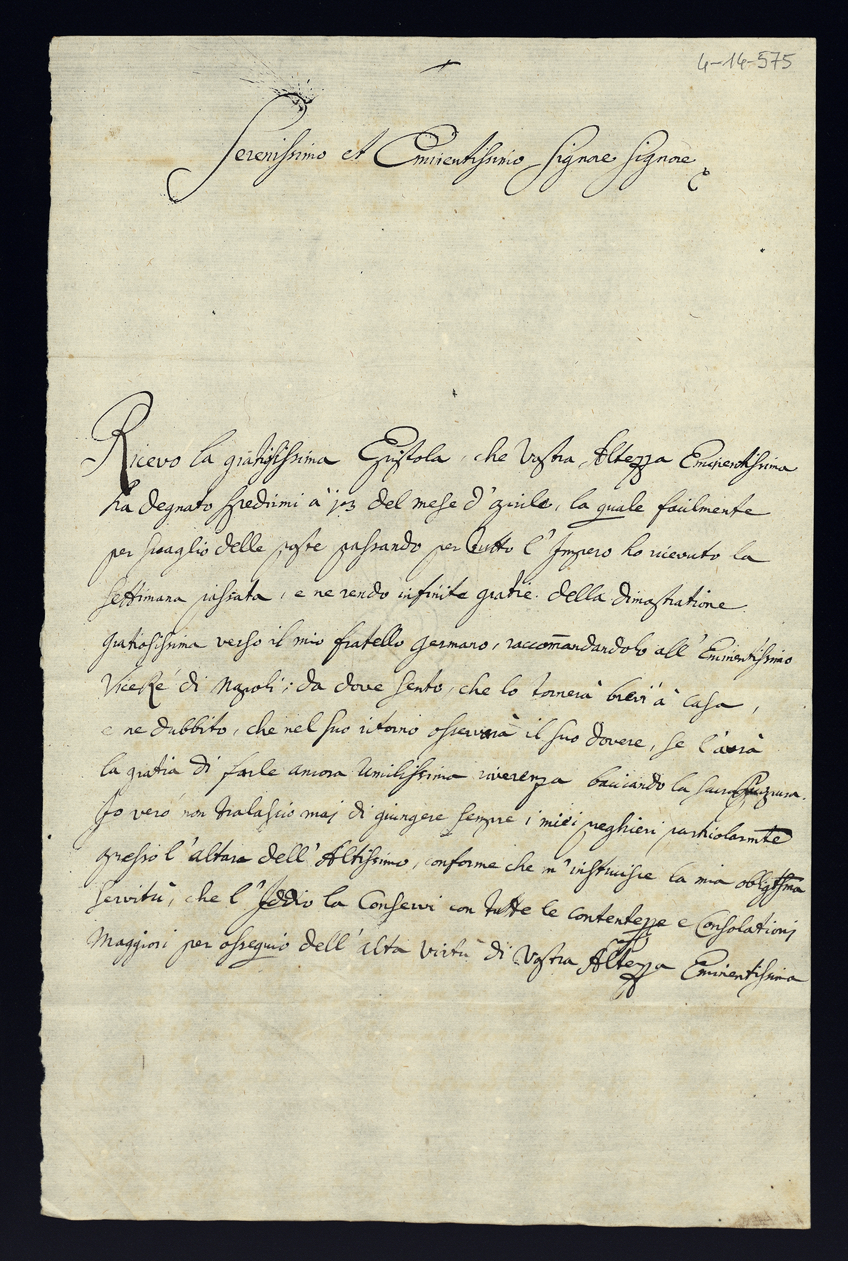 4-14-575
Serenissimo et Eminentissimo Signore Signore
Ricevo la gratiosissima Epistola, che Vostra Altezza Eminentissima
ha degnato spedirmi à del mese d'Aprile, la quale facilmente
per sbaglio delle poste passando per tutto l'Impero ho ricevuto la
settimana passata, e ne rendo infinite gratie della dimostratione
gratiosissima verso il mio fratello germano, raccommandandolo all'Eminentissimo
ViceRé di Napoli; da dove sento, che lo tornerà à casa,
e ne dubbito, che nel suo ritorno osserverà il suo dovere, se l'avrà
la gratia di farle ancora umilissima riverenza bacciando la sacra
Io verò non tralascio maj di giungere sempre i miei preghieri particolarmte
presso l'altare dell'Altissimo, conforme che m'instruisce la mia obligtsma
servitù, che l'Iddio la Conservi con tutte le contentezze e Consolationj
Maggiori per ossequio dell'alta virtù di Vostra Altezza Eminentissima